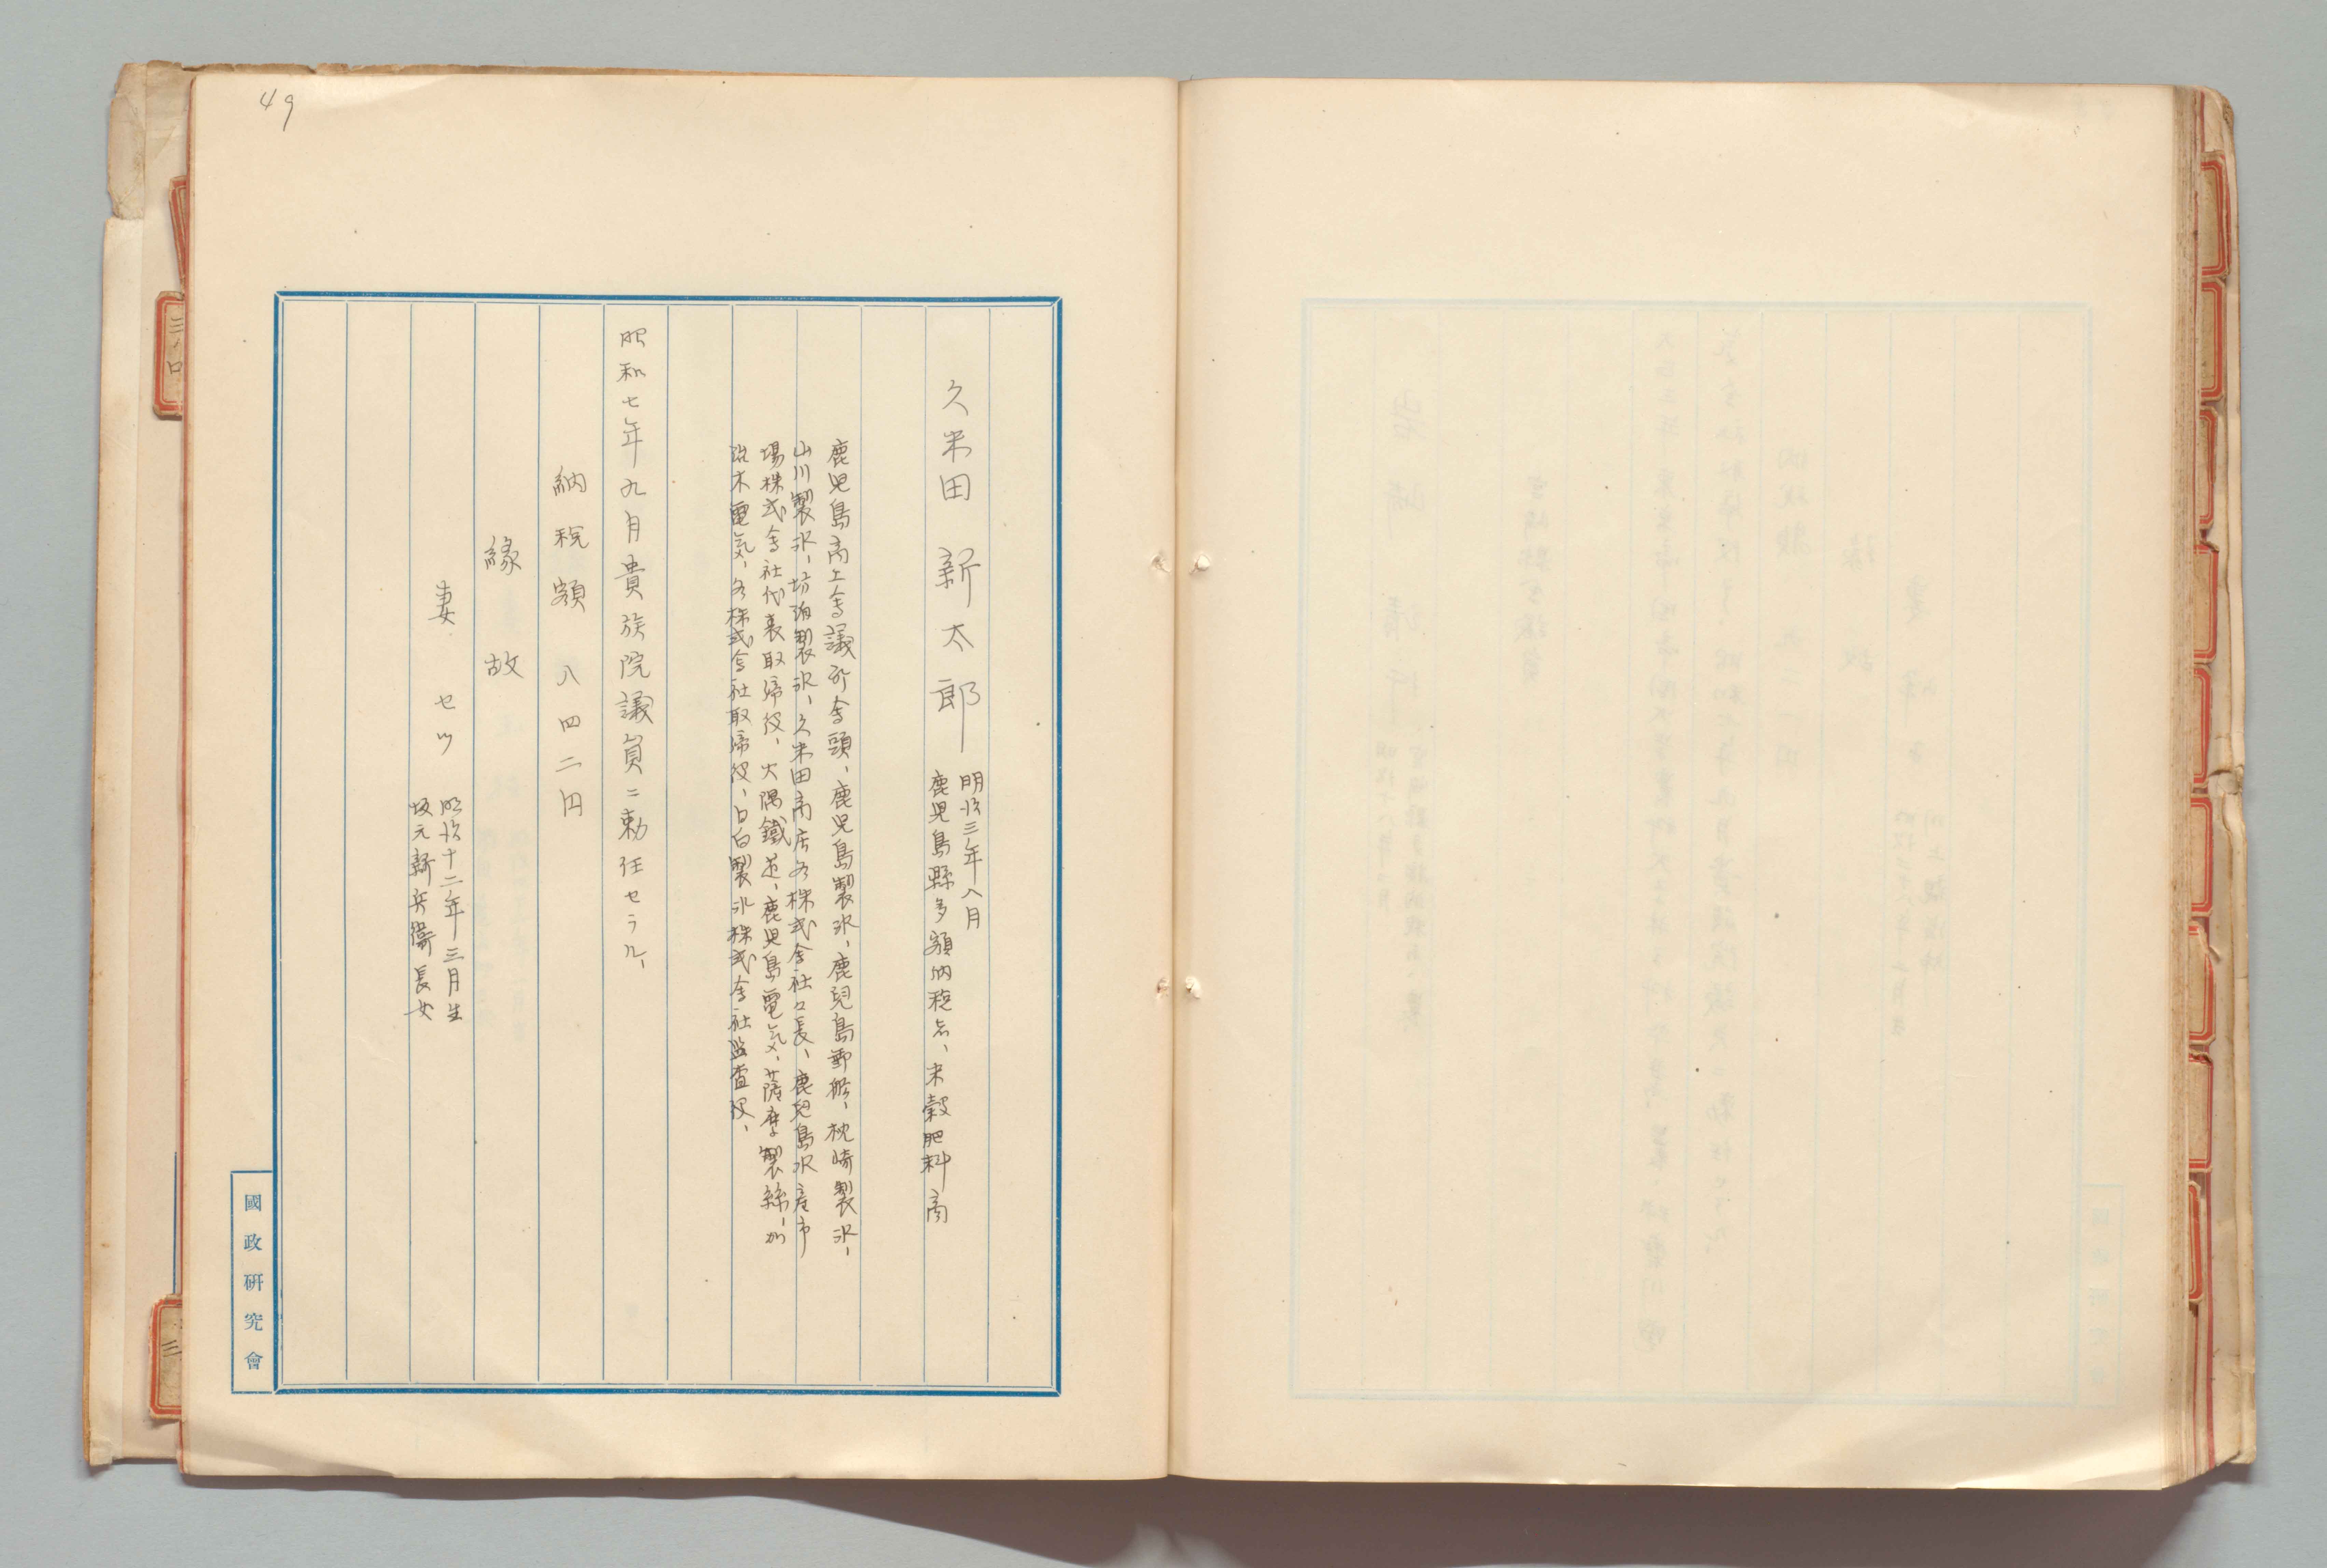 49
久米田 新太郎
明治三年八月
鹿児島縣多額納税者、米穀肥料商
鹿児島商工会議所会頭、鹿児島製氷、鹿児島郵船、枕崎製氷、
山川製氷、坊泊製氷、久米田商店各株式会社々長、鹿児島水産市
場株式会社代表取締役、大隅鐵道、鹿児島電気、薩摩製絲、加
治木電気、各株式会社取締役、日白製氷株式会社監査役、
昭和七年九月貴族院議員ニ勅任セラル、
納税額 八四二円
緣故
妻 セツ
明治十二年三月生
坂元新兵衞長女
國政研究會
三ノ口
三